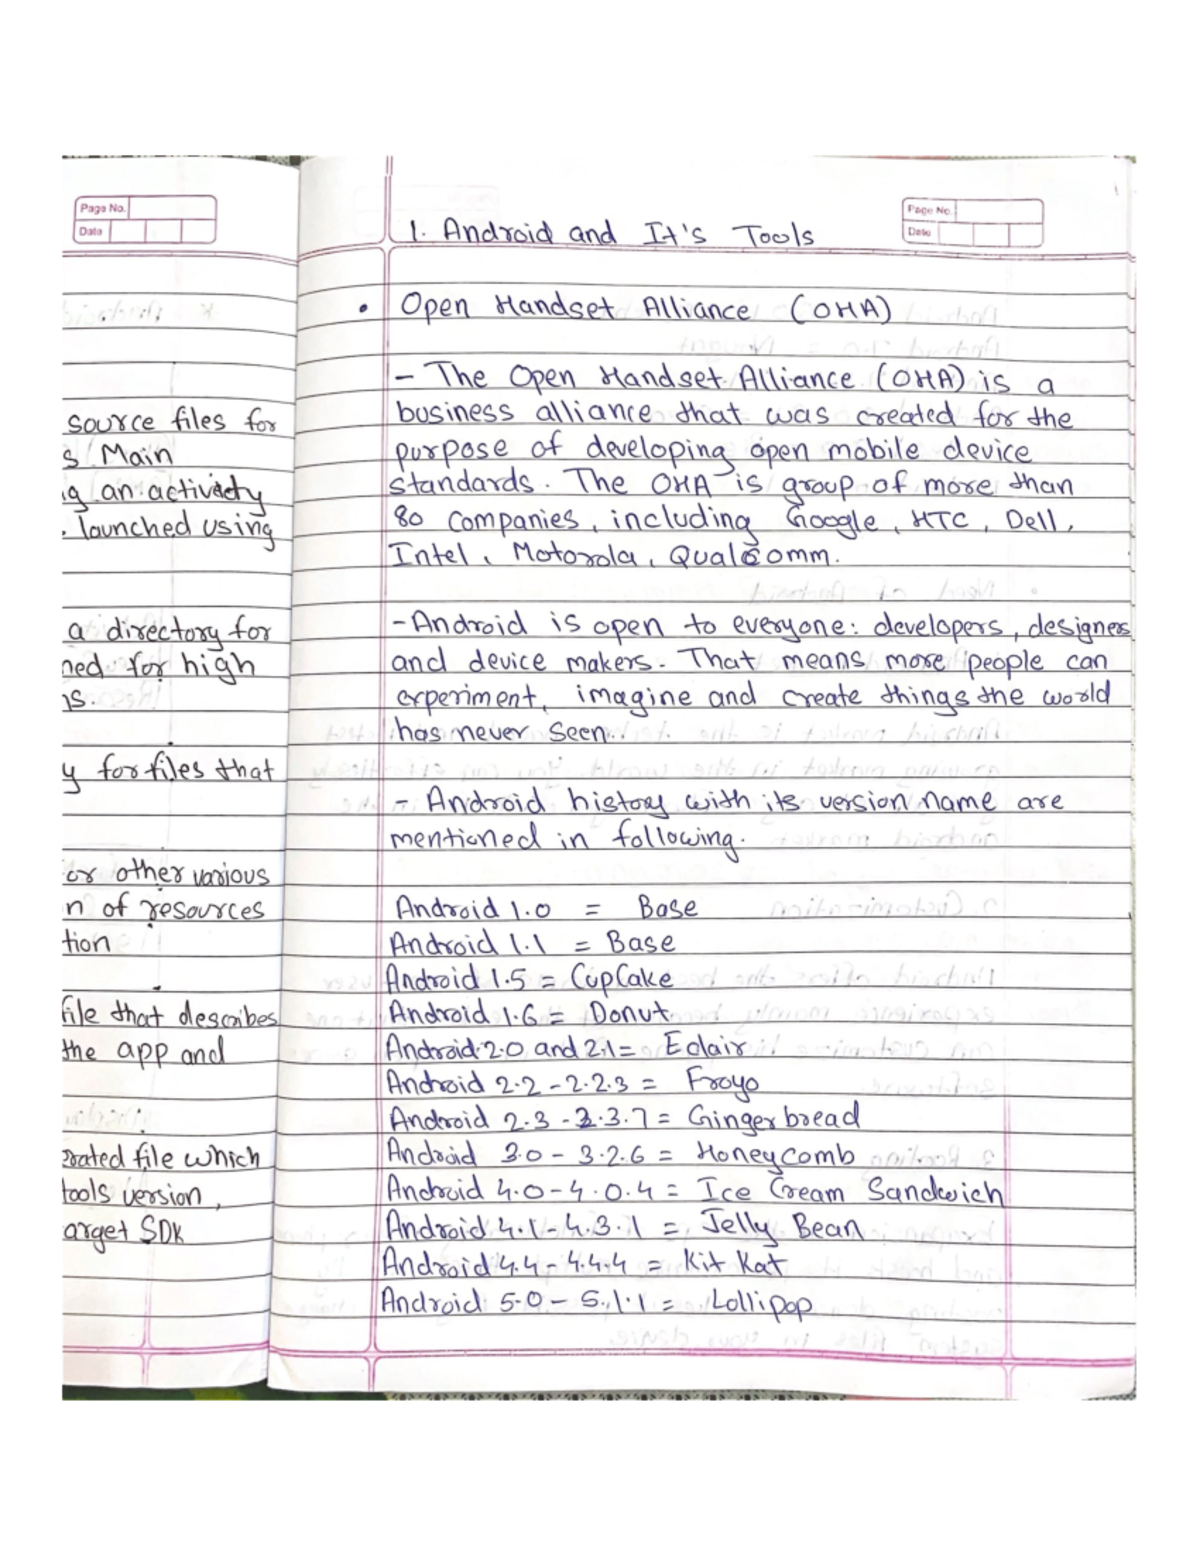 Page No.
Date
source files for
s Main
ig an activity
. launched using
a directory for
ned for high
ns.
y for files that
or other various
n of resources
tion
file that describes
the app and
erated file which
tools version,
arget SDK
Page No.
Date
1. Android and It's Tools
• Open Handset Alliance (OHA)
- The Open Handset Alliance (OHA) is a
business alliance that was created for the
purpose of developing open mobile device
standards. The OHA is group of more than
80 Companies, including Google, HTC, Dell,
Intel, Motorola, Qualcomm.
- Android is open to everyone: developers, designers
and device makers. That means more people can
experiment, imagine and create things the world
has never seen.
- Android history with its version name are
mentioned in following.
Android 1.0 = Base
Android 1.1 = Base
Android 1.5 = CupCake
Android 1.6 = Donut
Android 2.0 and 2.1 = Eclair
Android 2.2 - 2.2.3 = Froyo
Android 2.3 - 2.3.7 = Ginger bread
Android 3.0 - 3.2.6 = Honeycomb
Android 4.0 - 4.0.4 = Ice Cream Sandwich
Android 4.1 - 4.3.1 = Jelly Bean
Android 4.4 - 4.4.4 = Kit Kat
Android 5.0 - 5.1.1 = Lollipop